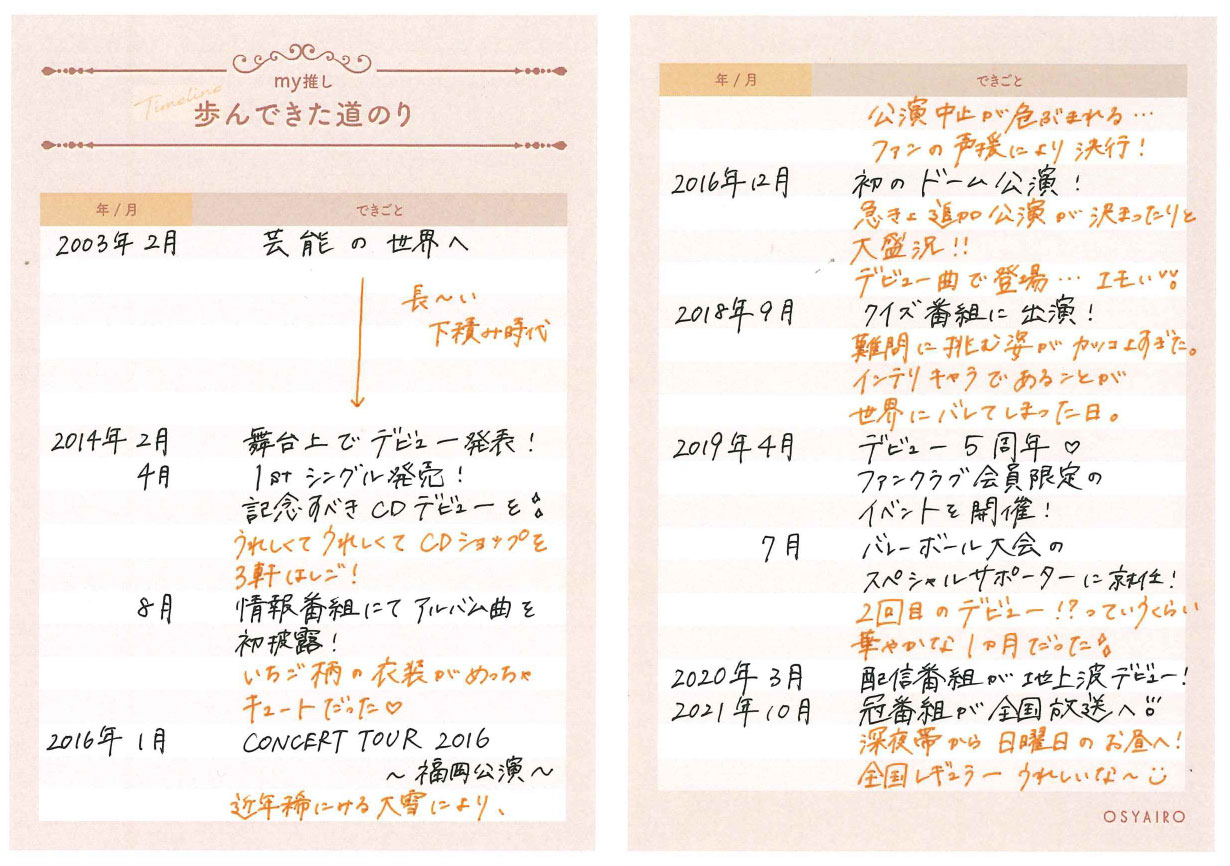 my推し
Timeline
歩んできた道のり
年/月 できごと
2003年2月 芸能の世界へ
長〜い
下積み時代
2014年2月 舞台上でデビュー発表!
4月 1stシングル発売!
記念すべきCDデビューを
うれしくてうれしくてCDショップを
3軒はしご!
8月 情報番組にてアルバム曲を
初披露!
いちご柄の衣装がめっちゃ
キュートだった♡
2016年1月 CONCERT TOUR 2016
〜福岡公演〜
近年稀にける大雪により、
年/月 できごと
公演中止が危ぶまれる…
ファンの声援により決行!
2016年12月 初のドーム公演!
急きょ追加公演が決まったりと
大盛況!!
デビュー曲で登場…エモい
2018年9月 クイズ番組に出演!
難問に挑む姿がカッコよすぎた。
インテリキャラであることが
世界にバレてしまった日。
2019年4月 デビュー5周年♡
ファンクラブ会員限定の
イベントを開催!
7月 バレーボール大会の
スペシャルサポーターに就任!
2回目のデビュー!?っていうくらい
華やかな1ヵ月だった
2020年3月 配信番組が地上波デビュー!
2021年10月 冠番組が全国放送へ
深夜帯から日曜日のお昼へ!
全国レギュラーうれしいな〜
OSYAIRO